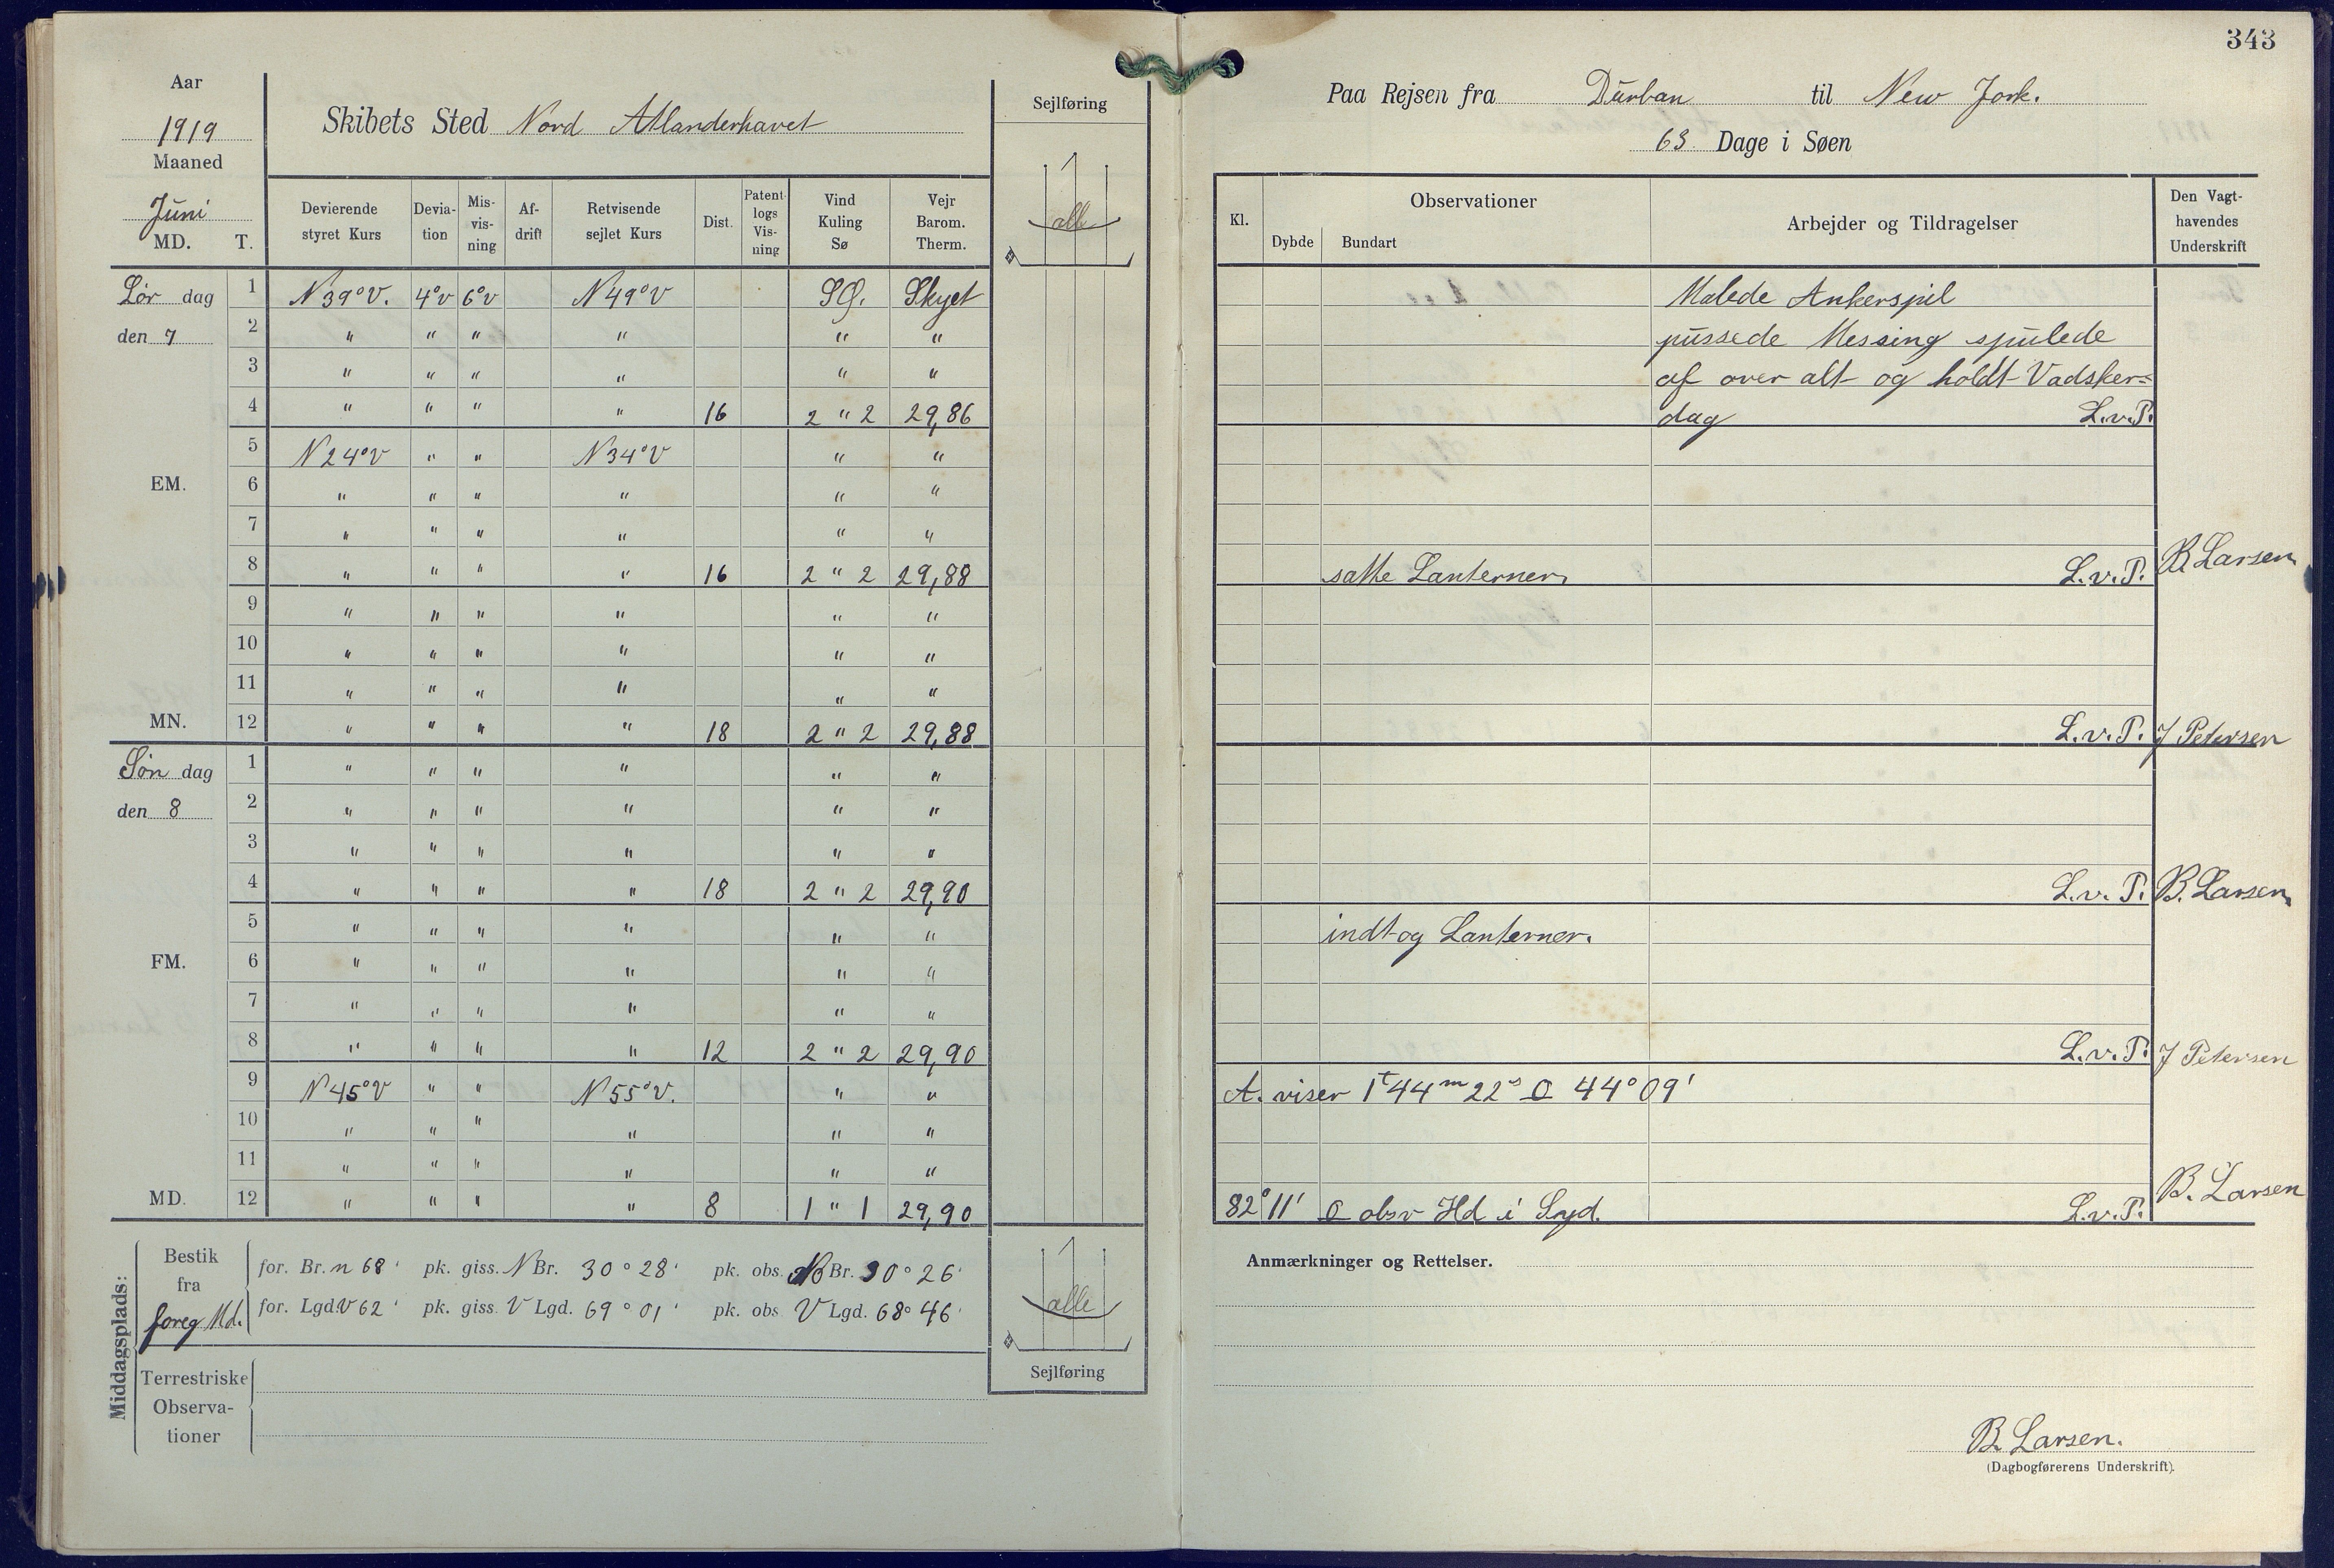 343
Aar
1919
Maaned
Juni
MD. T.
Skibets Sted Nord Atlanderhavet
Sejlføring
alle
Paa Rejsen fra Durban til New Jork.
63 Dage i Søen
Devierende styret Kurs | Devia- tion | Mis- vis- ning | Af- drift | Retvisende sejlet Kurs | Dist. | Patent- logs Vis- ning | Vind Kuling Sø | Vejr Barom. Therm.
Kl. | Observationer | Dybde | Bundart | Arbejder og Tildragelser | Den Vagt- havendes Underskrift
Lør dag 1 N 39° V. 4° v 6° v N 49° V SØ. Skyet Malede Ankerspil
den 7 2 " " " " " " pussede Messing spulede
3 " " " " " " af over alt og holdt Vadsker=
4 " " " " 16 2 " 2 29,86 dag L.v.P.
5 N 24° V " " N 34° V " "
EM. 6 " " " " " "
7 " " " " " "
8 " " " " 16 2 " 2 29,88 satte Lanterner, L.v.P. B. Larsen
9 " " " " " "
10 " " " " " "
11 " " " " " "
MN. 12 " " " " 18 2 " 2 29,88 L.v.P. J Petersen
Søn dag 1 " " " " " "
den 8 2 " " " " " "
3 " " " " " "
4 " " " " 18 2 " 2 29,90 L.v.P. B. Larsen
5 " " " " " " indtog Lanterner.
FM. 6 " " " " " "
7 " " " " " "
8 " " " " 12 2 " 2 29,90 L.v.P. J Petersen
9 N 45° V " " N 55° V. " " A. viser 1t 44m 22s O 44° 09'
10 " " " " " "
11 " " " " " "
MD. 12 " " " " 8 1 " 1 29,90 82° 11' O obsv Hd i Syd. L.v.P. B. Larsen
Middagsplads:
Bestik fra foreg Md.
for. Br. n 68' pk. giss. N Br. 30° 28' pk. obs. N Br. 30° 26'
for. Lgd V 62' pk. giss. V Lgd. 69° 01' pk. obs. V Lgd. 68° 46'
alle
Sejlføring
Terrestriske
Observa-
tioner
Anmærkninger og Rettelser.
B. Larsen.
(Dagbogførerens Underskrift).